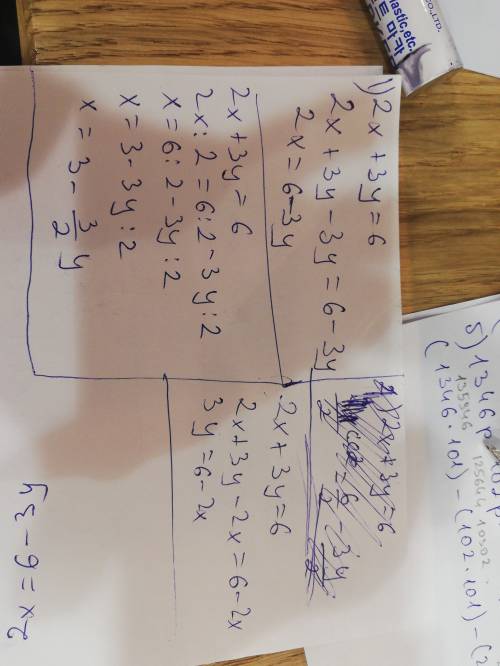 1) 2x + 3y = 6
2x + 3y - 3y = 6 - 3y
2x = 6 - 3y
2x + 3y = 6
2x : 2 = 6 : 2 - 3y : 2
x = 6 : 2 - 3y : 2
x = 3 - 3y : 2
x = 3 - 3/2 y
2x + 3y = 6
2x + 3y = 6
2x + 3y - 2x = 6 - 2x
3y = 6 - 2x
2x = 6 - 3y
5) 1346
135946 125644 10302
(1346 · 101) - (102 · 101) - (2
lastic, etc.
CO., LTD.